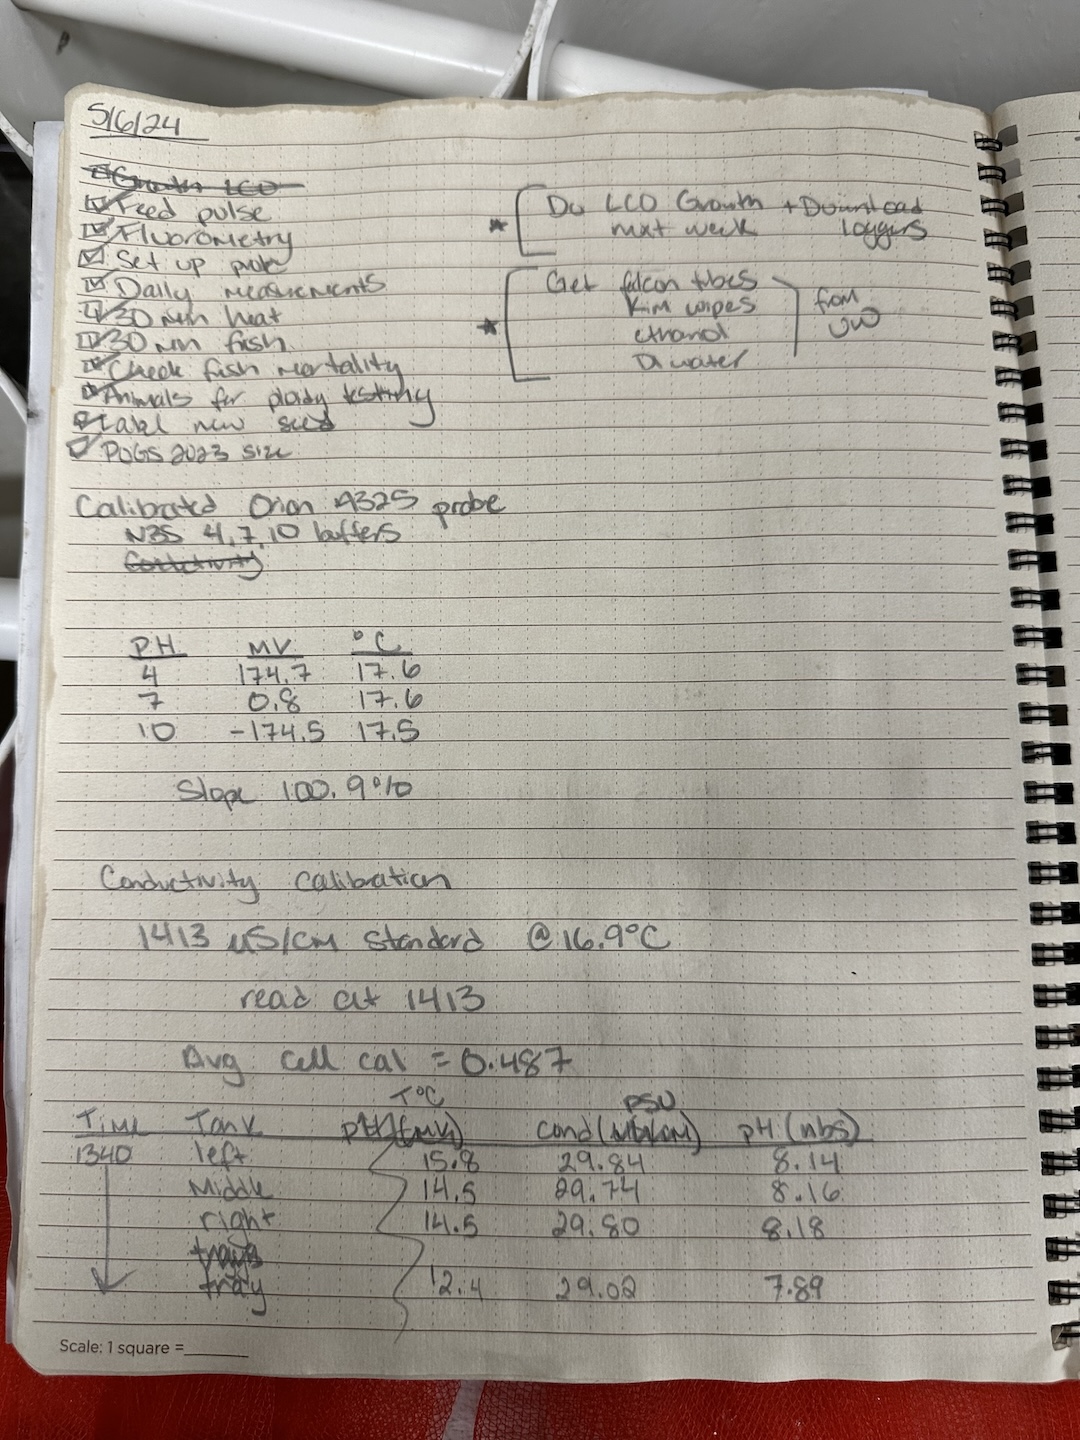 5/6/24
Growth LCO
Feed pulse
Fluorometry
Set up probe
Daily measurements
30 min heat
30 min fish
Check fish mortality
Animals for ploidy testing
Label new seed
POGS 2023 size
* Do LCO Growth + Download
next week loggers
* Get falcon tubes
Kim wipes
ethanol
Di water
from
UW
Calibrated Orion A325 probe
NBS 4, 7, 10 buffers
Conductivity
PH MV °C
4 174.7 17.6
7 0.8 17.6
10 -174.5 17.5
Slope 100.9%
Conductivity calibration
1413 uS/cm standard @ 16.9°C
read at 1413
Avg cell cal = 0.487
T°C PSU
Time Tank pH (mV) cond pH (nbs)
1340 left 15.8 29.84 8.14
Middle 14.5 29.74 8.16
right 14.5 29.80 8.18
trays
tray 12.4 29.02 7.89
Scale: 1 square =